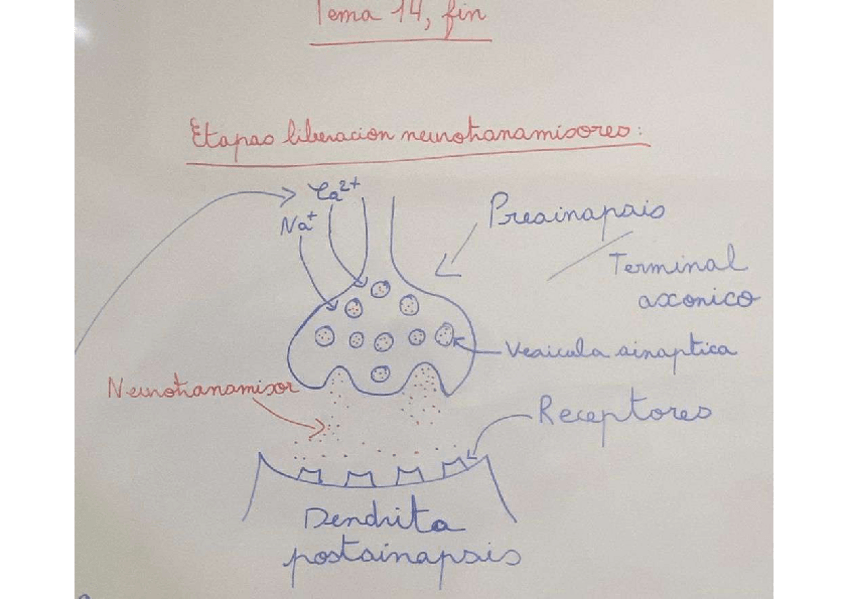 Tema 14, fin
Etapas liberacion neurotransmisores:
Ca2+
Na+
Presinapsis
Terminal
axonico
Vesicula sinaptica
Neurotransmisor
Receptores
Dendrita
postsinapsis